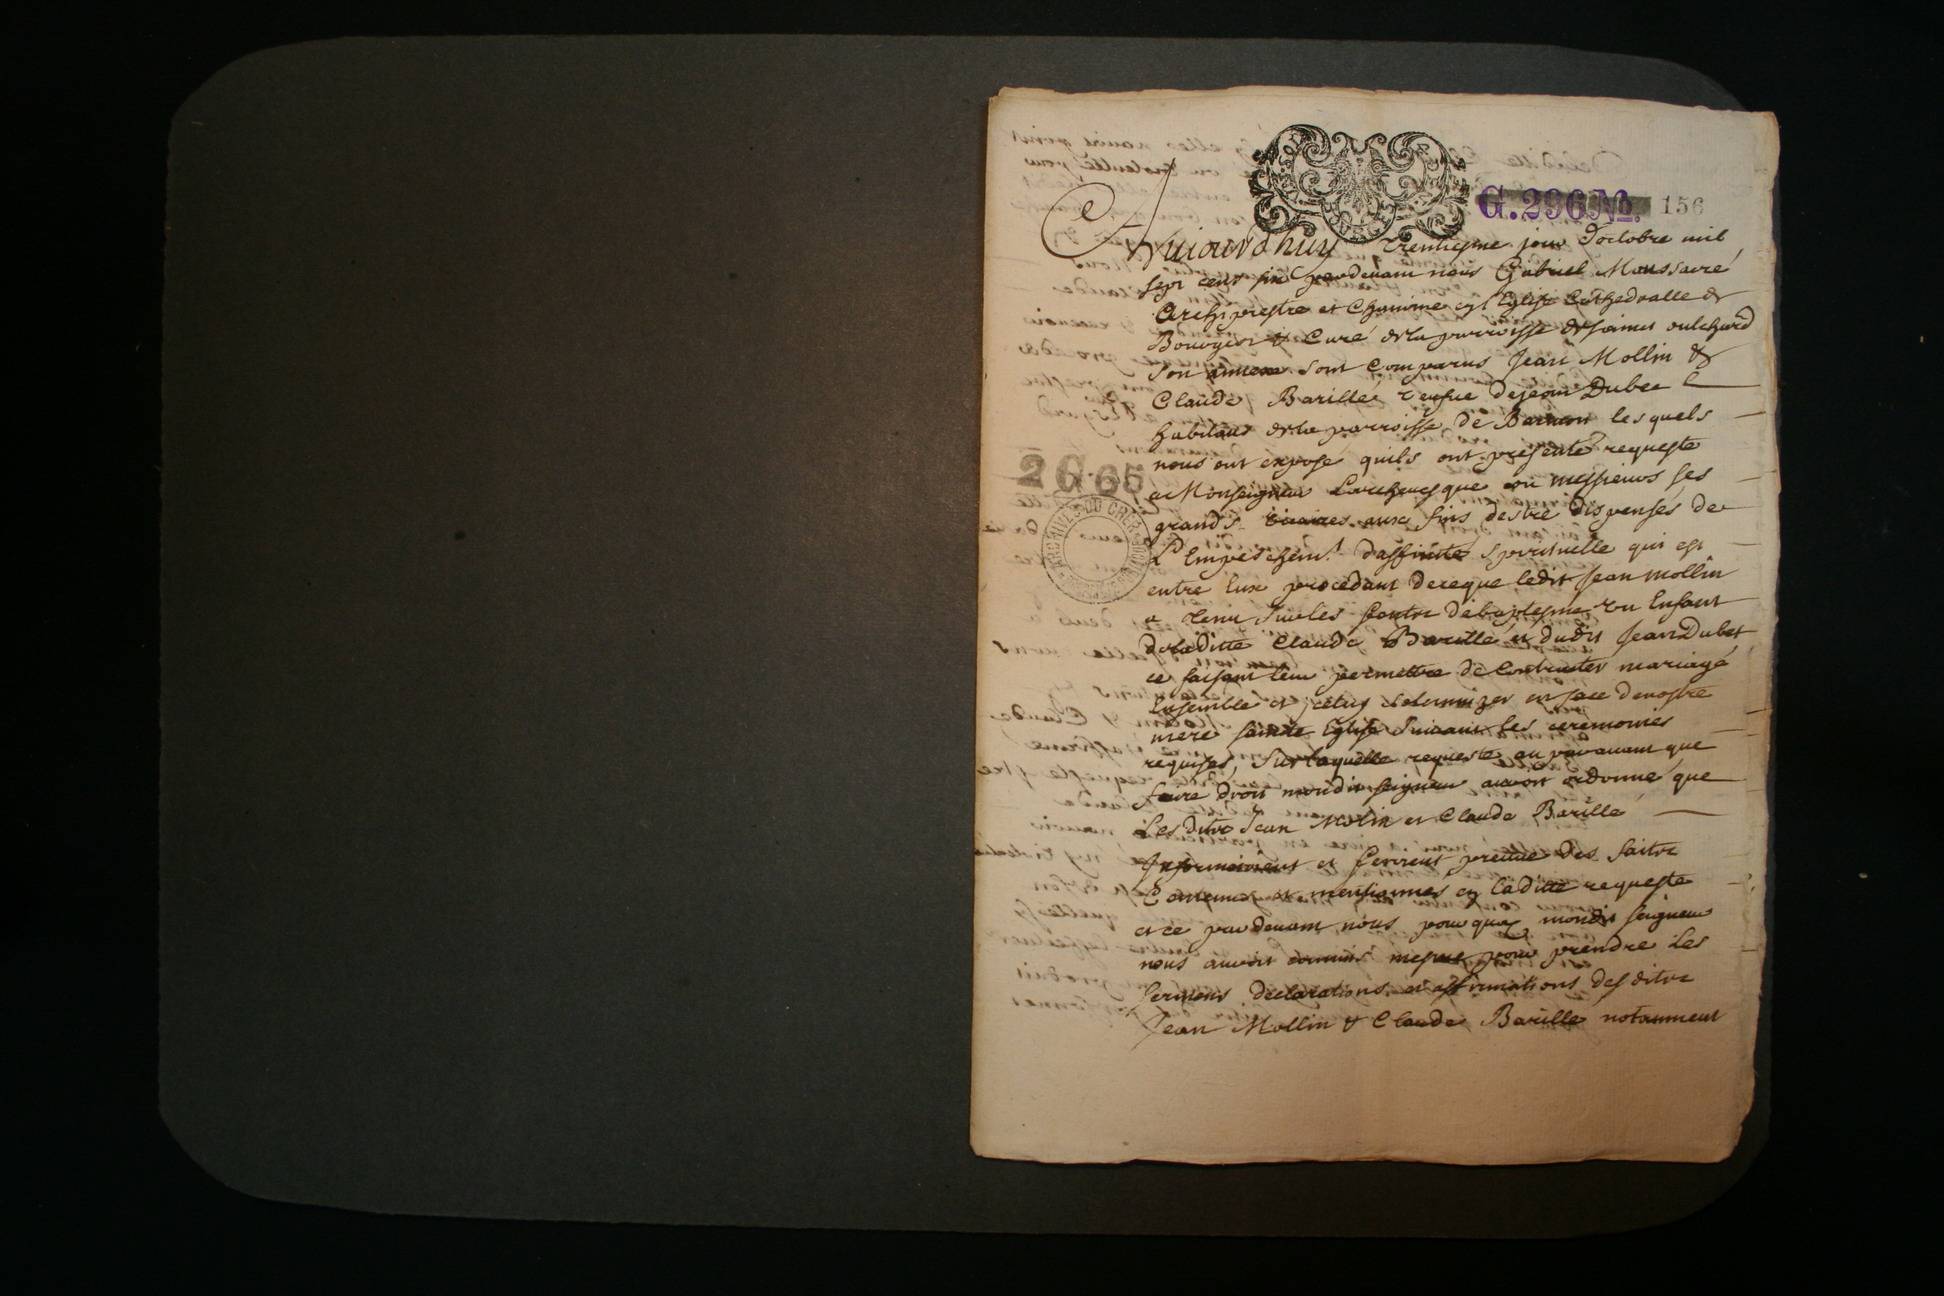 G.296 No. 156
Aujourd'huy trentiesme jour d'octobre mil
sept cens six pardevant nous Gabriel Moussacré
Archiprestre et Chanoine en l'Eglise Cathedralle de
Bourges & Curé de la parroisse de saint oulchard
son annexe sont Comparus Jean Mollin &
Claude Barillé veufue de jean Dubet
habitans de la parroisse de lesquels
nous ont exposé quils ont presenté requeste
a Monseigneur Larchevesque ou messieurs ses
grands vicaires aux fins destre dispensés de
L'Empeschemt. daffinité spirituelle qui est
entre Eux procedant de ce que ledit Jean mollin
a tenu sur les fontz de baptesme un Enfant
de laditte Claude Barillé et dudit Jean Dubet
ce faisant leur permettre de Contracter mariage
Ensemble et icelluy solemnizer en face de nostre
mere sainte Eglise suivant les ceremonies
requises, sur laquelle requeste auparavant que
faire droit mondit seigneur auroit ordonné que
Lesdits Jean Molin et Claude Barillé
Informeroient et feroient preuve des faits
Contenus et mentionnés en laditte requeste
et ce pardevant nous pourquoy mondit seigneur
nous auroit commis mesme pour prendre Les
sermens declarations et affirmations desdits
Jean Mollin & Claude Barillé notamment
2 G 65
ARCHIVES DU CHER